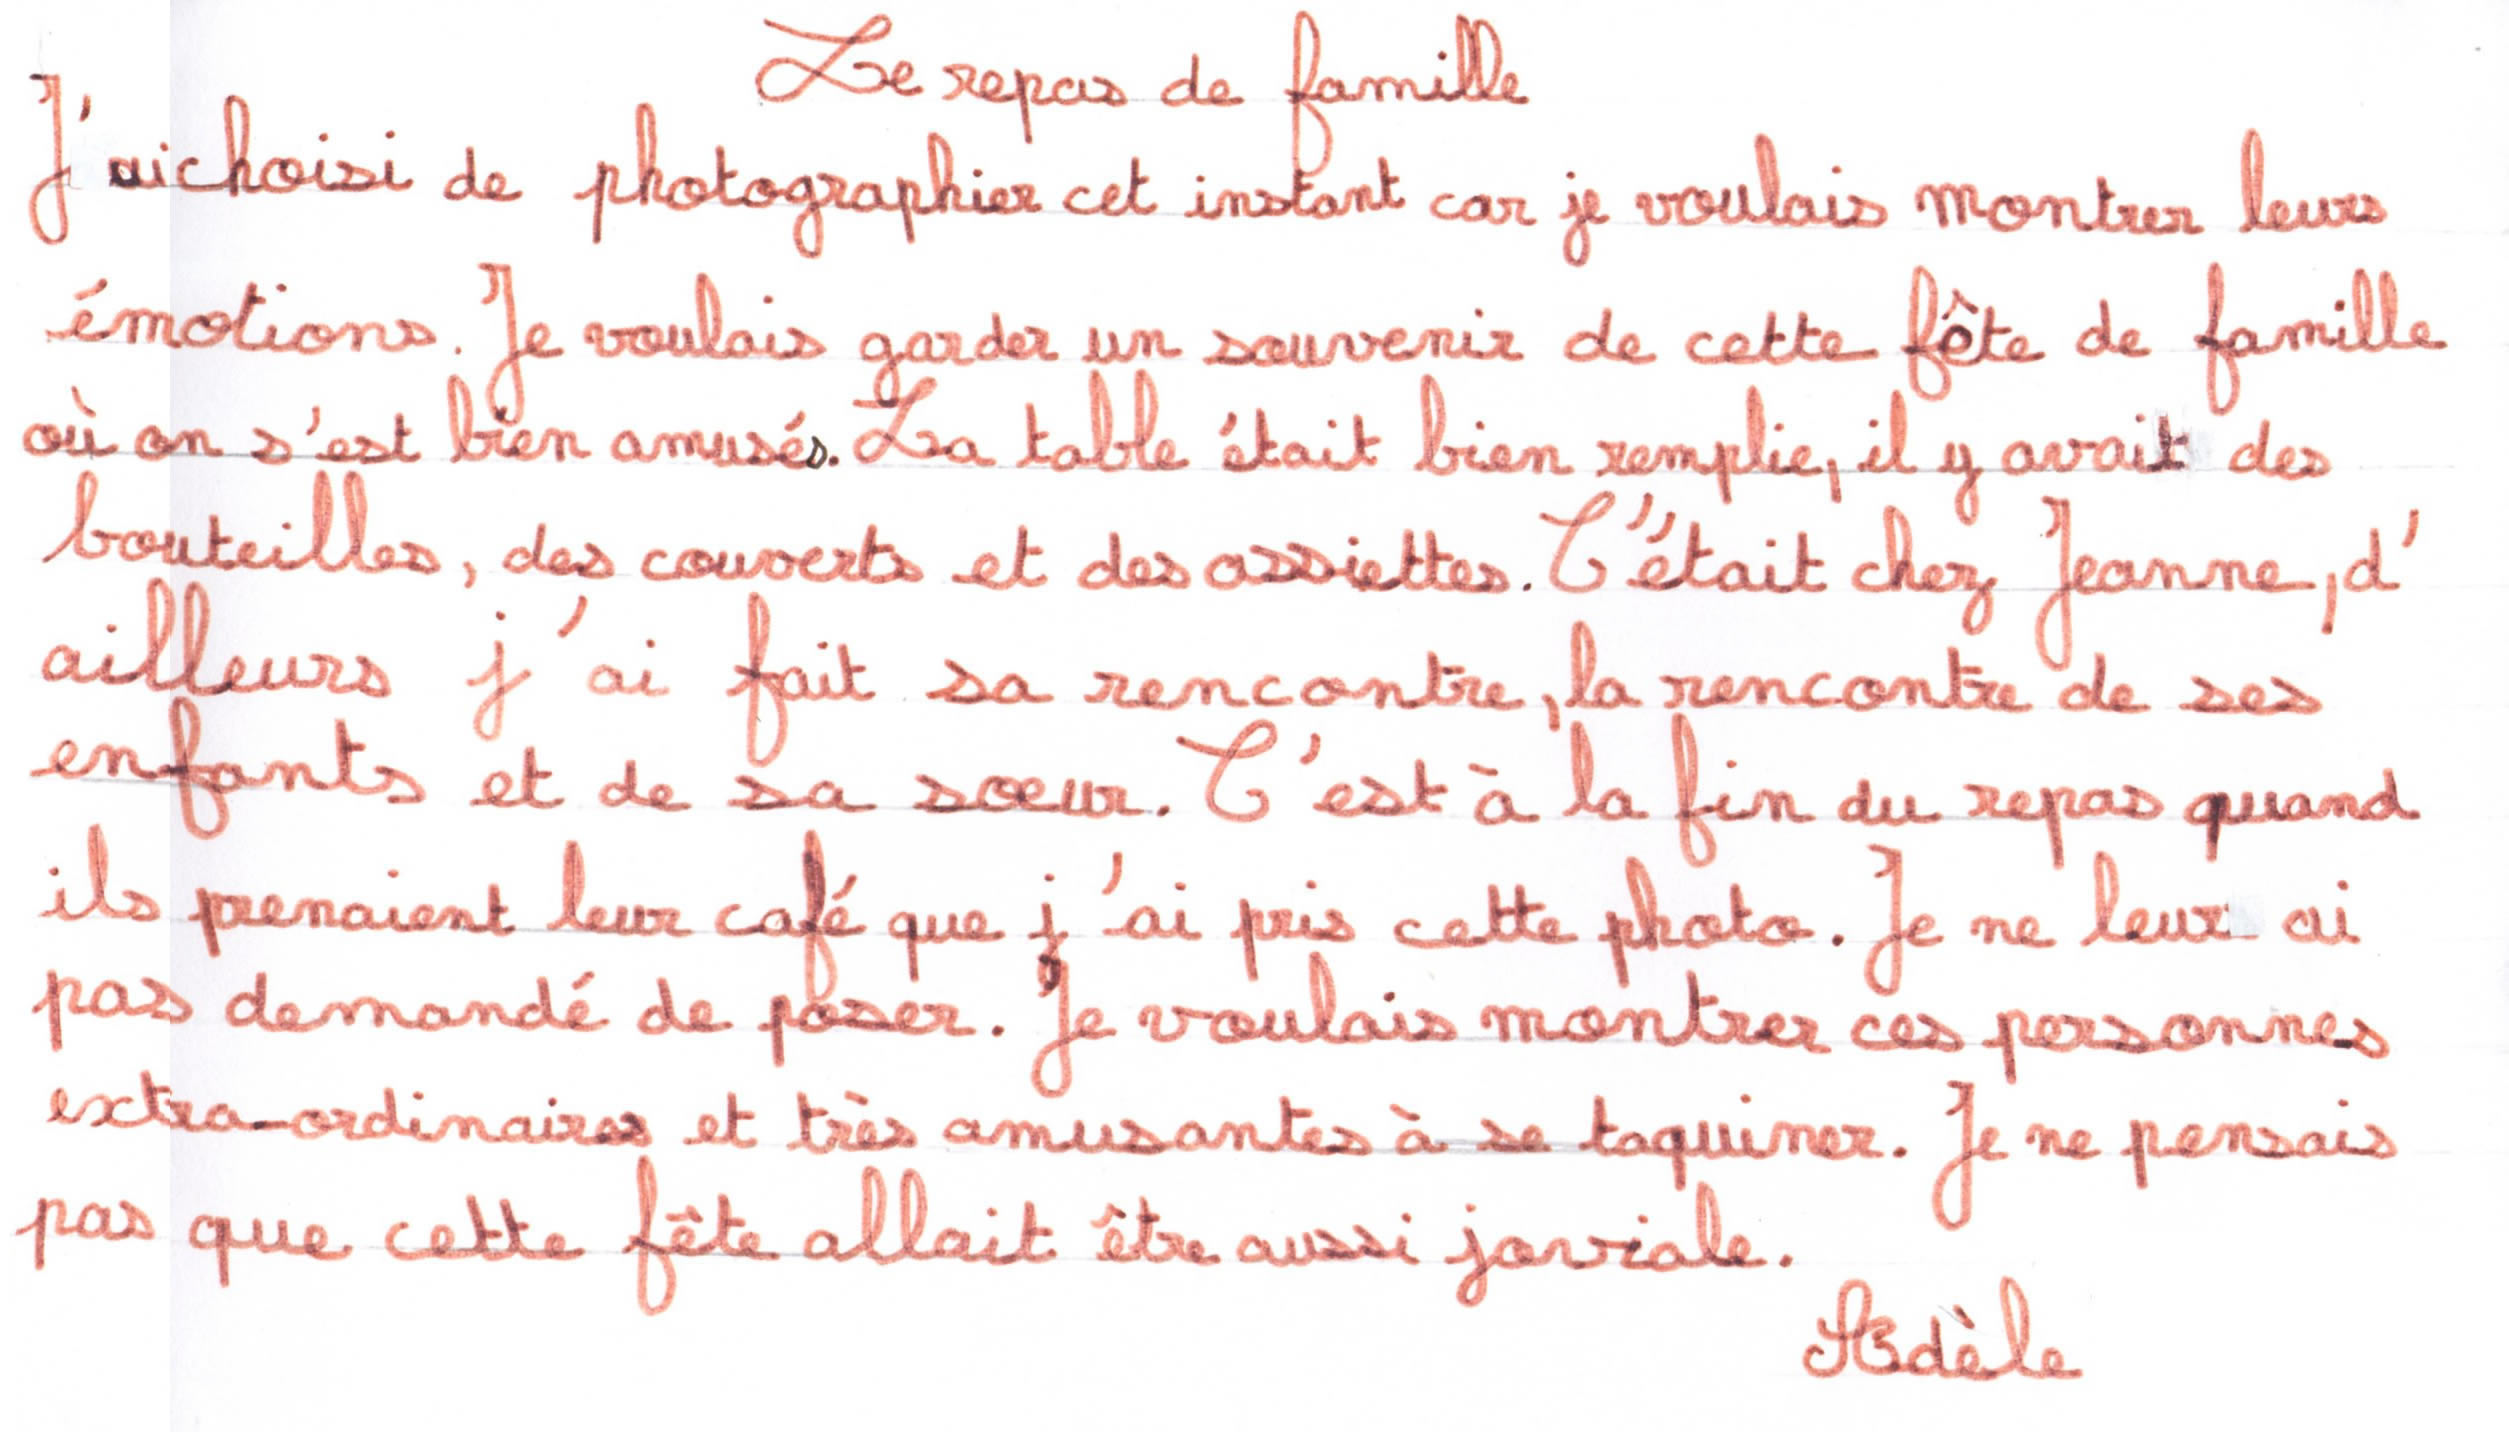 Le repas de famille
J'ai choisi de photographier cet instant car je voulais montrer leurs
émotions. Je voulais garder un souvenir de cette fête de famille
où on s'est bien amusés. La table était bien remplie, il y avait des
bouteilles, des couverts et des assiettes. C'était chez Jeanne, d'
ailleurs j'ai fait sa rencontre, la rencontre de ses
enfants et de sa sœur. C'est à la fin du repas quand
ils prenaient leur café que j'ai pris cette photo. Je ne leur ai
pas demandé de poser. Je voulais montrer ces personnes
extra-ordinaires et très amusantes à se taquiner. Je ne pensais
pas que cette fête allait être aussi joviale.
Adèle